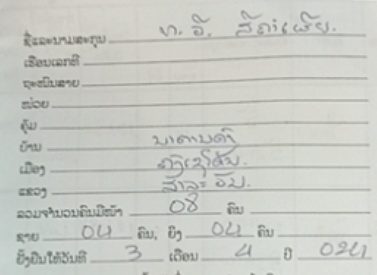 ຊື່ແລະນາມສະກຸນ ທ. ວີ.
ເຮືອນເລກທີ
ຖະໜົນສາຍ
ໜ່ວຍ
ຄຸ້ມ
ບ້ານ
ເມືອງ
ແຂວງ ສາລະວັນ.
ລວມຈຳນວນຄົນມີໜ້າ 08 ຄົນ
ຊາຍ 04 ຄົນ, ຍິງ 04 ຄົນ
ຍັ້ງຢືນໃຫ້ວັນທີ 3 ເດືອນ 4 ປີ 024